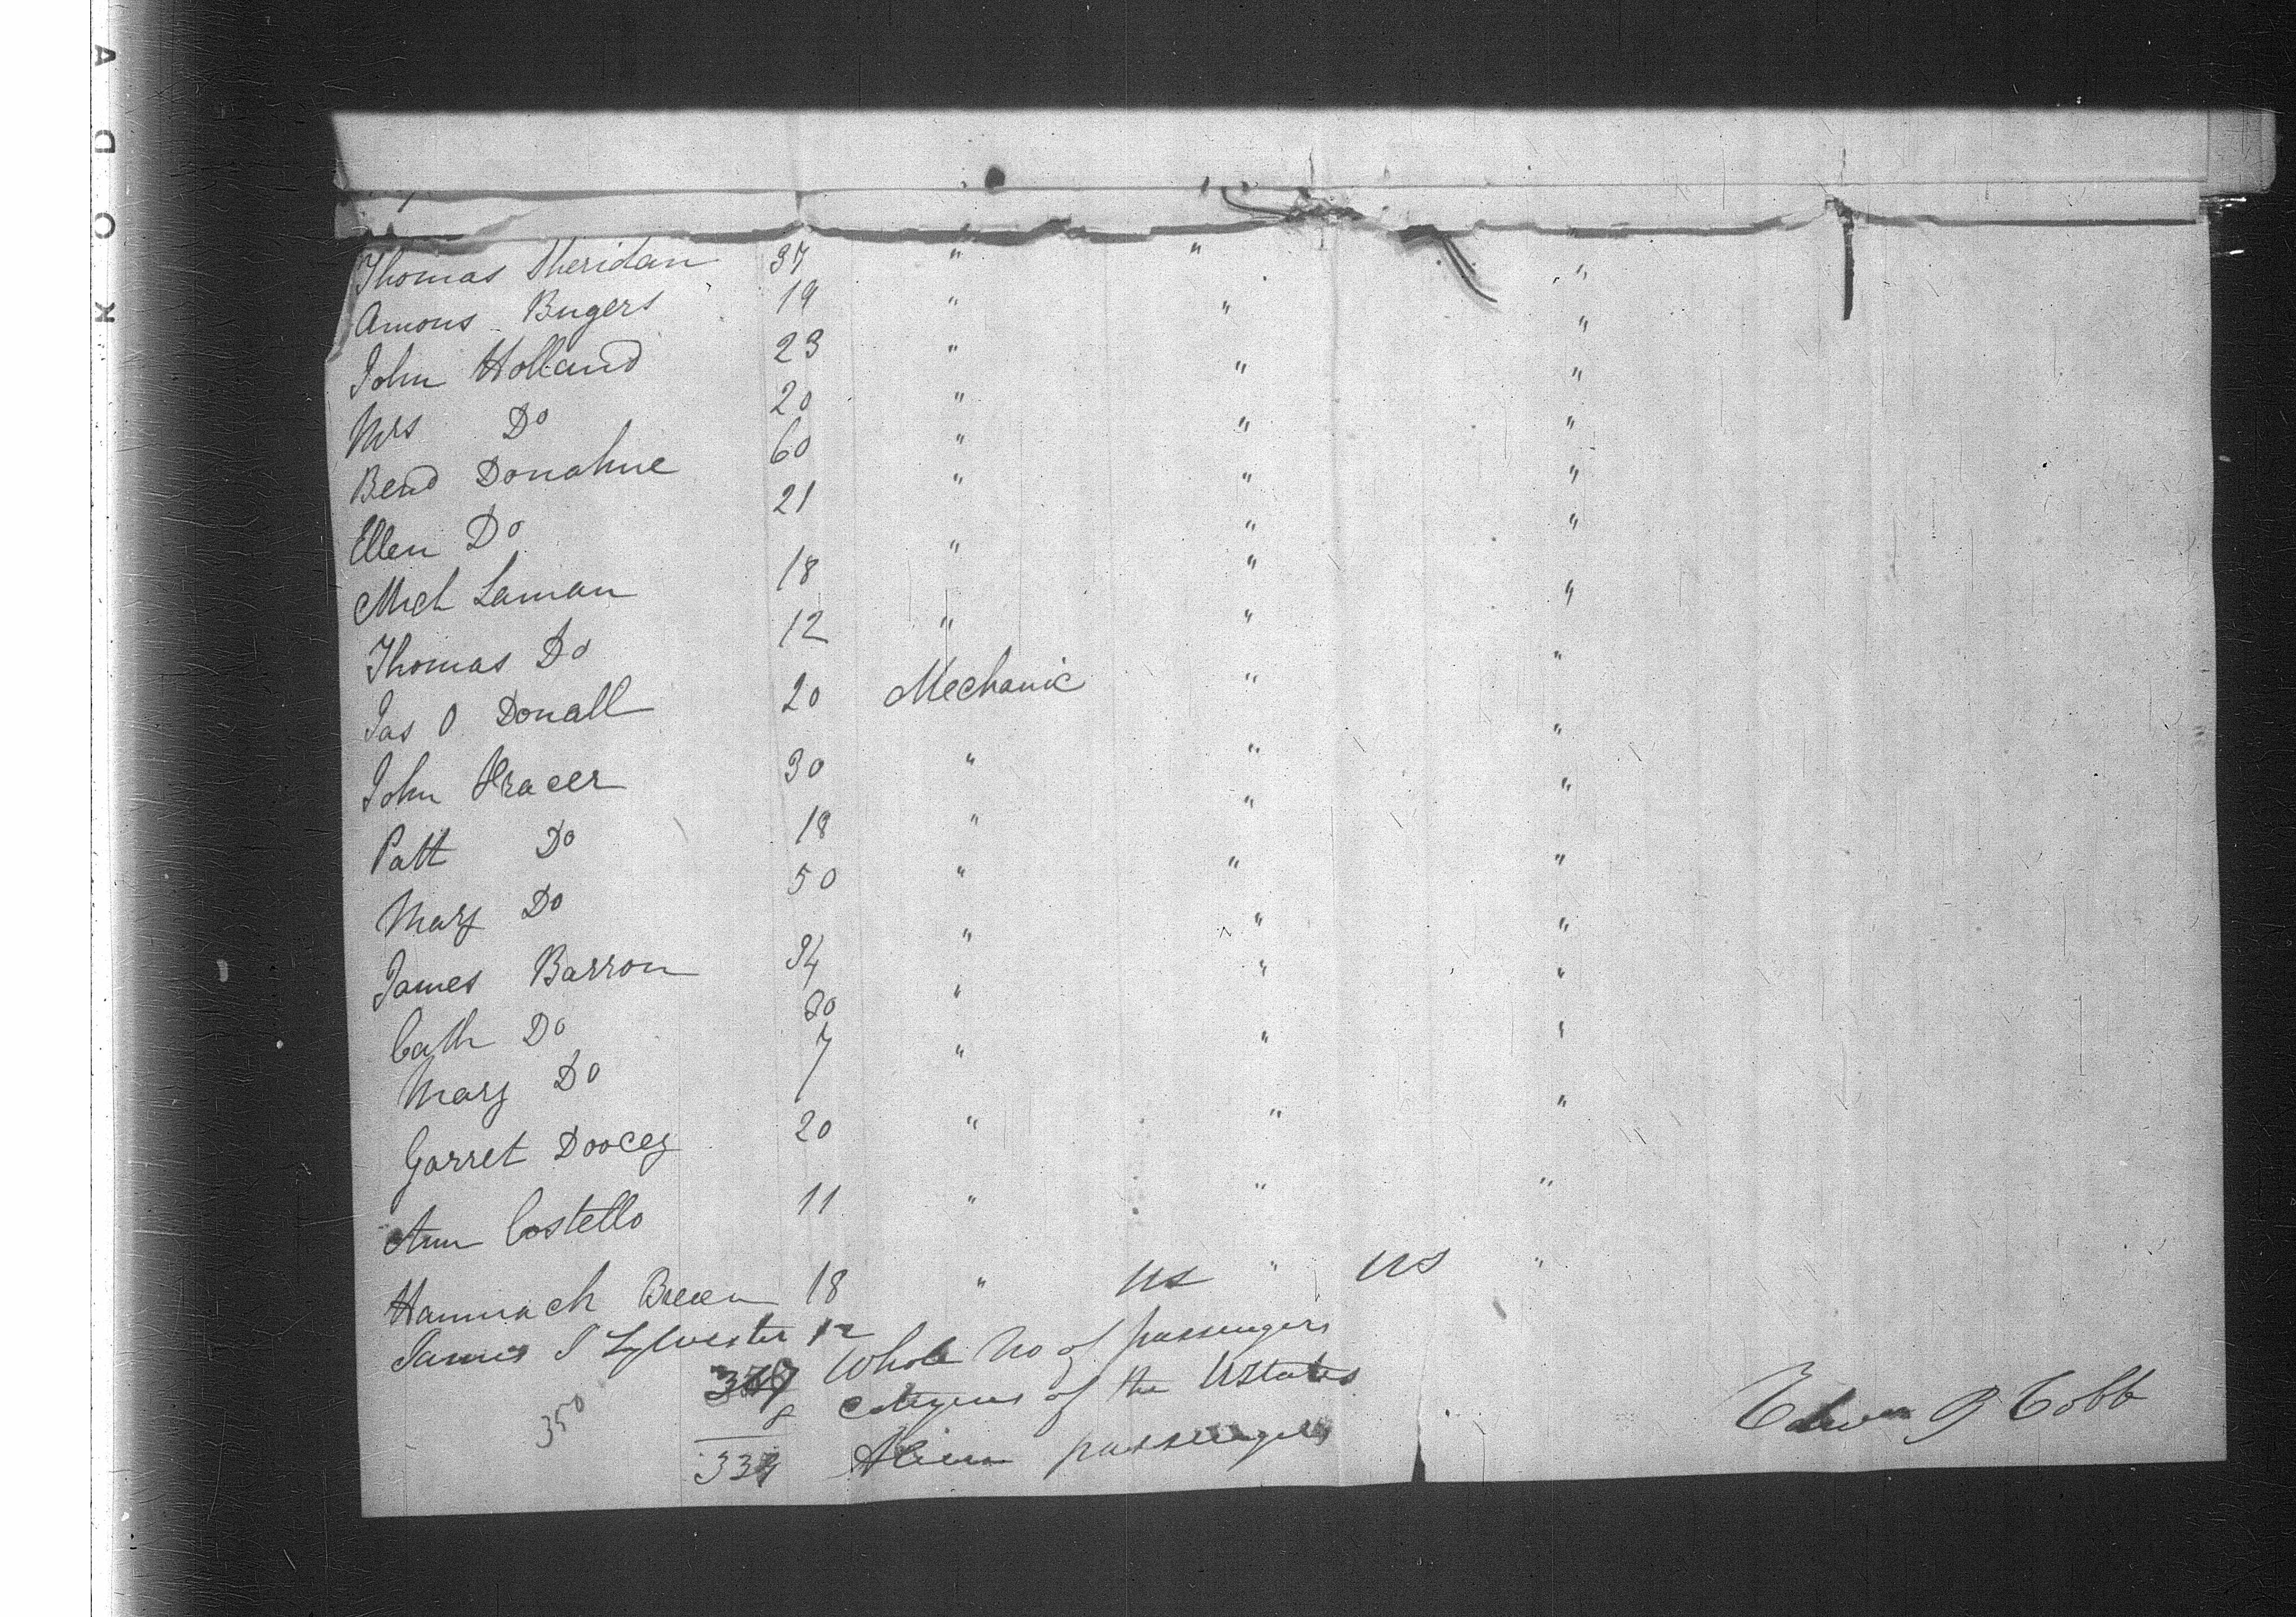 Thomas Sheridan 37 " " "
Amous Bugers 19 " " "
John Holland 23 " " "
Mrs Do 20 " " "
Bend Donahue 60 " " "
Ellen Do 21 " " "
Mich Laman 18 " " "
Thomas Do 12 " " "
Jas O Donall 20 Mechanic " "
John Hracer 30 " " "
Patt Do 18 " " "
Mary Do 50 " " "
James Barron 34 " " "
Cath Do 30 " " "
Mary Do 7 " " "
Garret Doocey 20 " " "
Ann Costello 11 " " "
Hannach Breen 18 " " "
James S Sylvester 12 US US
Whole No of passengers
8 Citizens of the UStates
350
Alien passengers
Edwin B Cobb
KODA